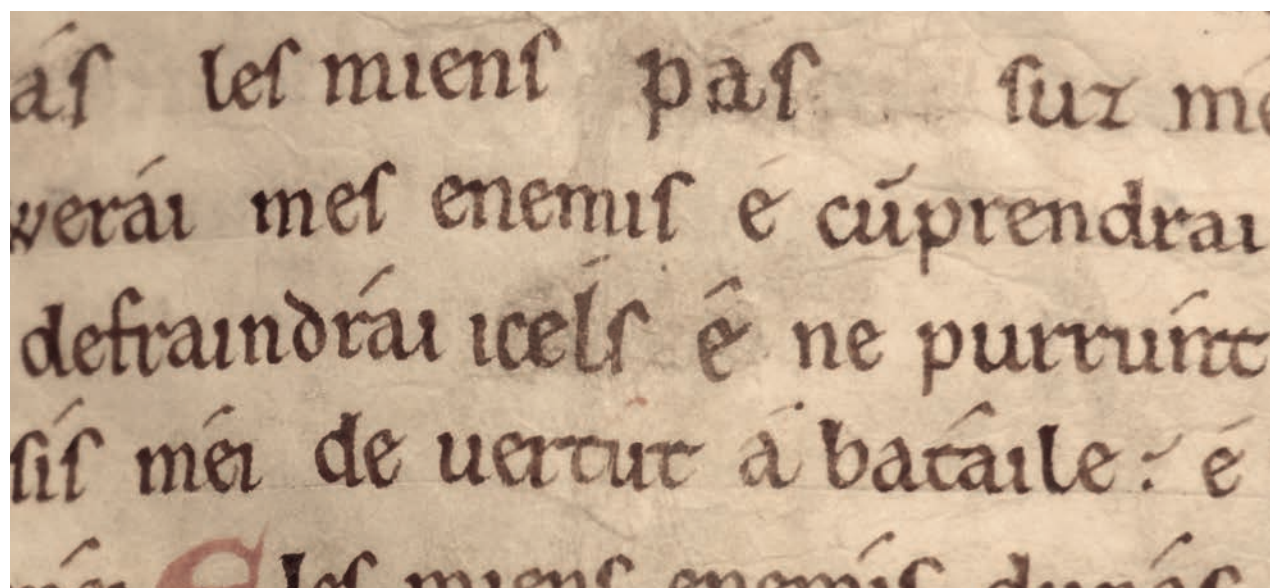 ás les miens pas sur mé
verái mes enemis é cũprendrai
defraindrái icels é ne purrúnt
sis méi de uertut á batáile: é
les miens enemís durás